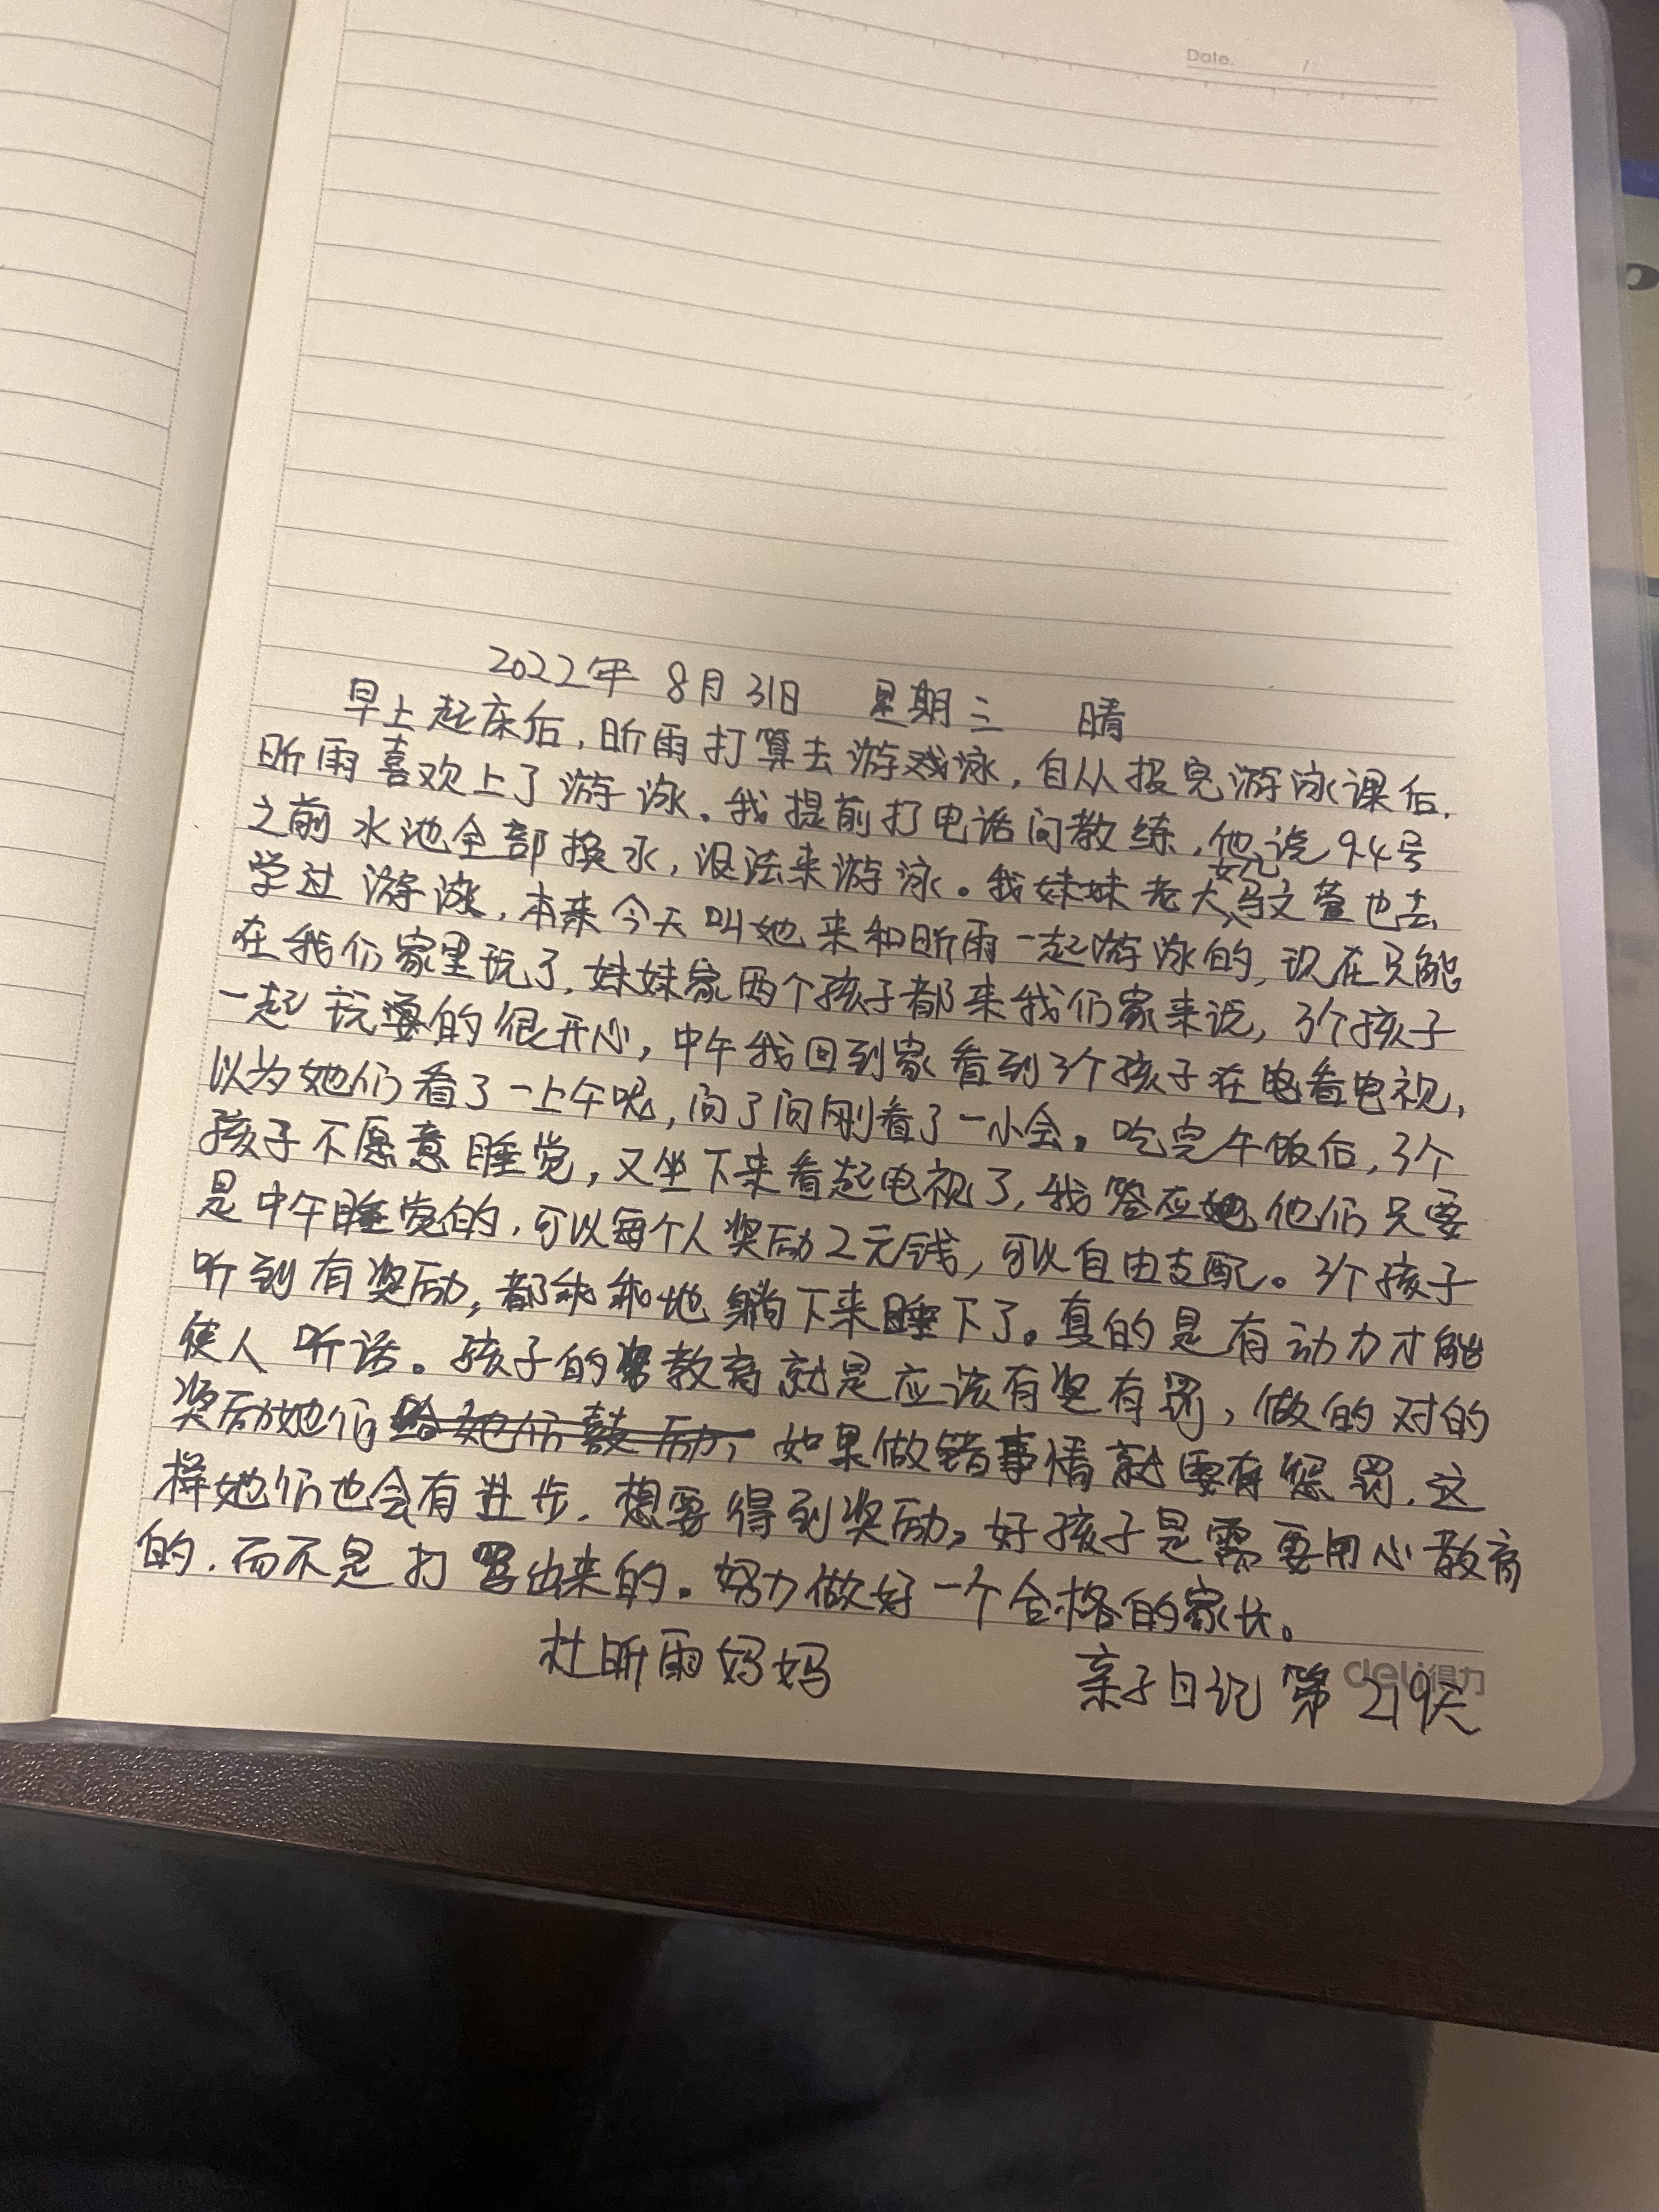 Date. /
2022年 8月31日 星期三 晴
早上起床后,昕雨打算去游戏泳,自从报完游泳课后,
昕雨喜欢上了游泳。我提前打电话问教练,他说9.4号
之前水池全部换水,没法来游泳。我妹妹老大女儿马文萱也去
学过游泳,本来今天叫她来和昕雨一起游泳的,现在只能
在我们家里玩了,妹妹家两个孩子都来我们家来说,3个孩子
一起玩耍的很开心,中午我回到家看到3个孩子在电看电视,
以为她们看了一上午呢,问了问刚看了一小会。吃完午饭后,3个
孩子不愿意睡觉,又坐下来看起电视了,我答应她他们只要
是中午睡觉的,可以每个人奖励2元钱,可以自由支配。3个孩子
听到有奖励,都乖乖地躺下来睡下了。真的是有动力才能
使人听话。孩子的教育就是应该有奖有罚,做的对的
奖励她们给她们鼓励,如果做错事情就要有惩罚,这
样她们也会有进步,想要得到奖励。好孩子是需要用心教育
的,而不是打骂出来的。努力做好一个合格的家长。
杜昕雨妈妈 亲子日记 第219天
deli得力